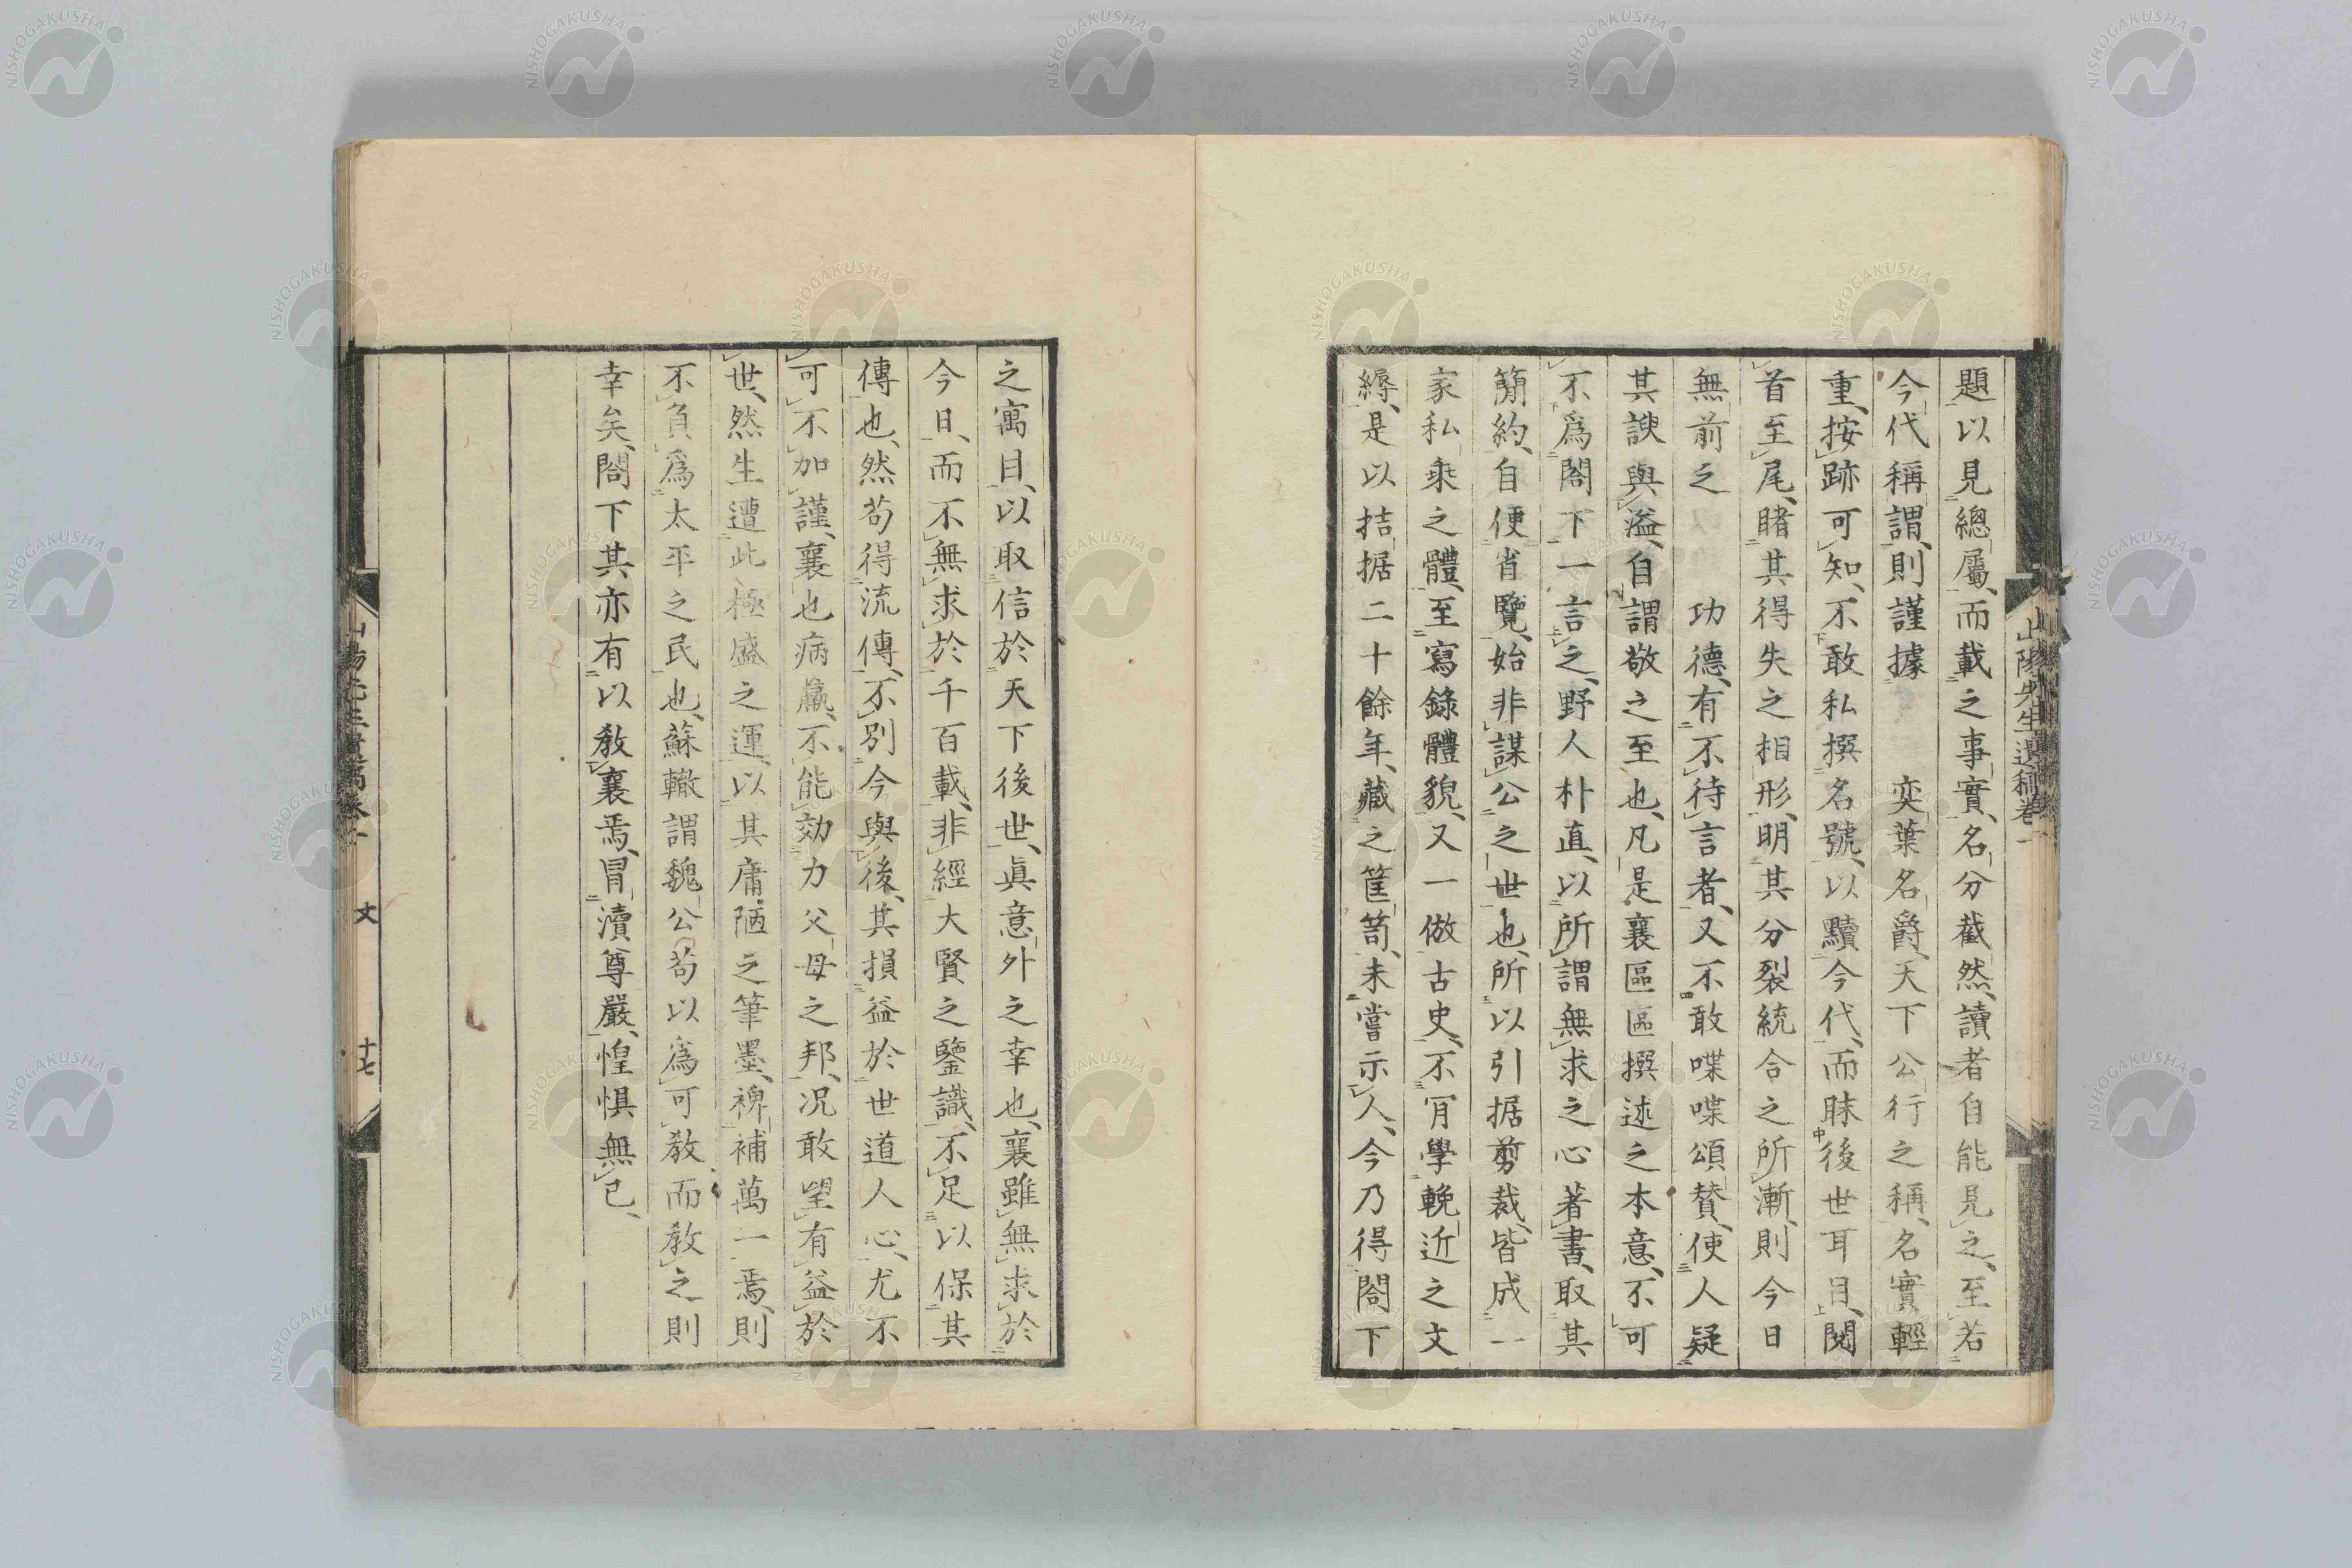 題以見總屬、而載之事實、名分截然、讀者自能見之、至若
今代稱謂、則謹據　　奕葉名爵、天下公行之稱、名實輕
重、按跡可知、不敢私撰名號、以黷今代、而眛後世耳目、閱
首至尾、睹其得失之相形、明其分裂統合之所漸、則今日
無前之　　功德、有不待言者、又不敢喋喋頌賛、使人疑
其諛與溢、自謂敬之至也、凡是襄區區撰述之本意、不可
不爲閤下一言之、野人朴直、以所謂無求之心著書、取其
簡約、自便省覽、始非謀公之世也、所以引据剪裁、皆成一
家私乘之體、至寫錄體貌、又一倣古史、不肎學輓近之文
縟、是以拮据二十餘年、藏之筐笥、未嘗示人、今乃得閤下
山陽先生遺稿卷一
之寓目、以取信於天下後世、眞意外之幸也、襄雖無求於
今日、而不無求於千百載、非經大賢之鑒識、不足以保其
傳也、然苟得流傳、不別今與後、其損益於世道人心、尤不
可不加謹、襄也病羸、不能効力父母之邦、况敢望有益於
世、然生遭此極盛之運、以其庸陋之筆墨、裨補萬一焉、則
不負爲太平之民也、蘇轍謂魏公苟以爲可敎而敎之則
幸矣、閤下其亦有以敎襄焉、冒瀆尊嚴、惶惧無已、
文
十七
NISHOGAKUSHA